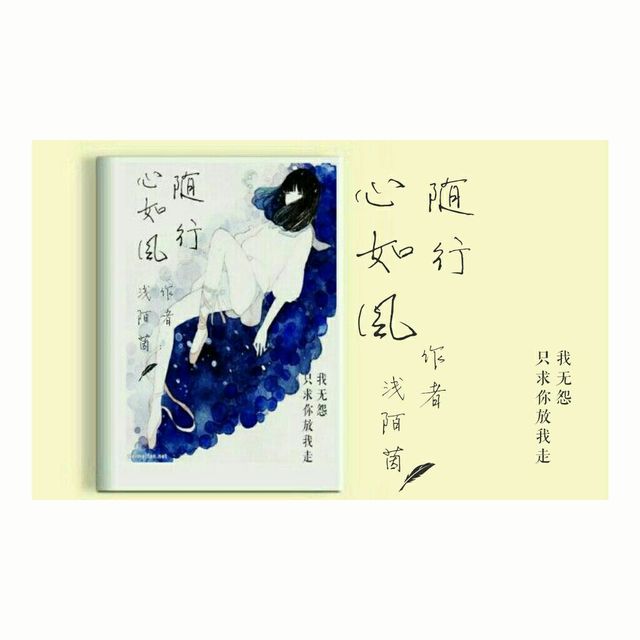 随行
心如风
作者
浅陌茵
我无怨
只求你放我走
随行
心如风
作者
浅陌茵
我无怨
只求你放我走